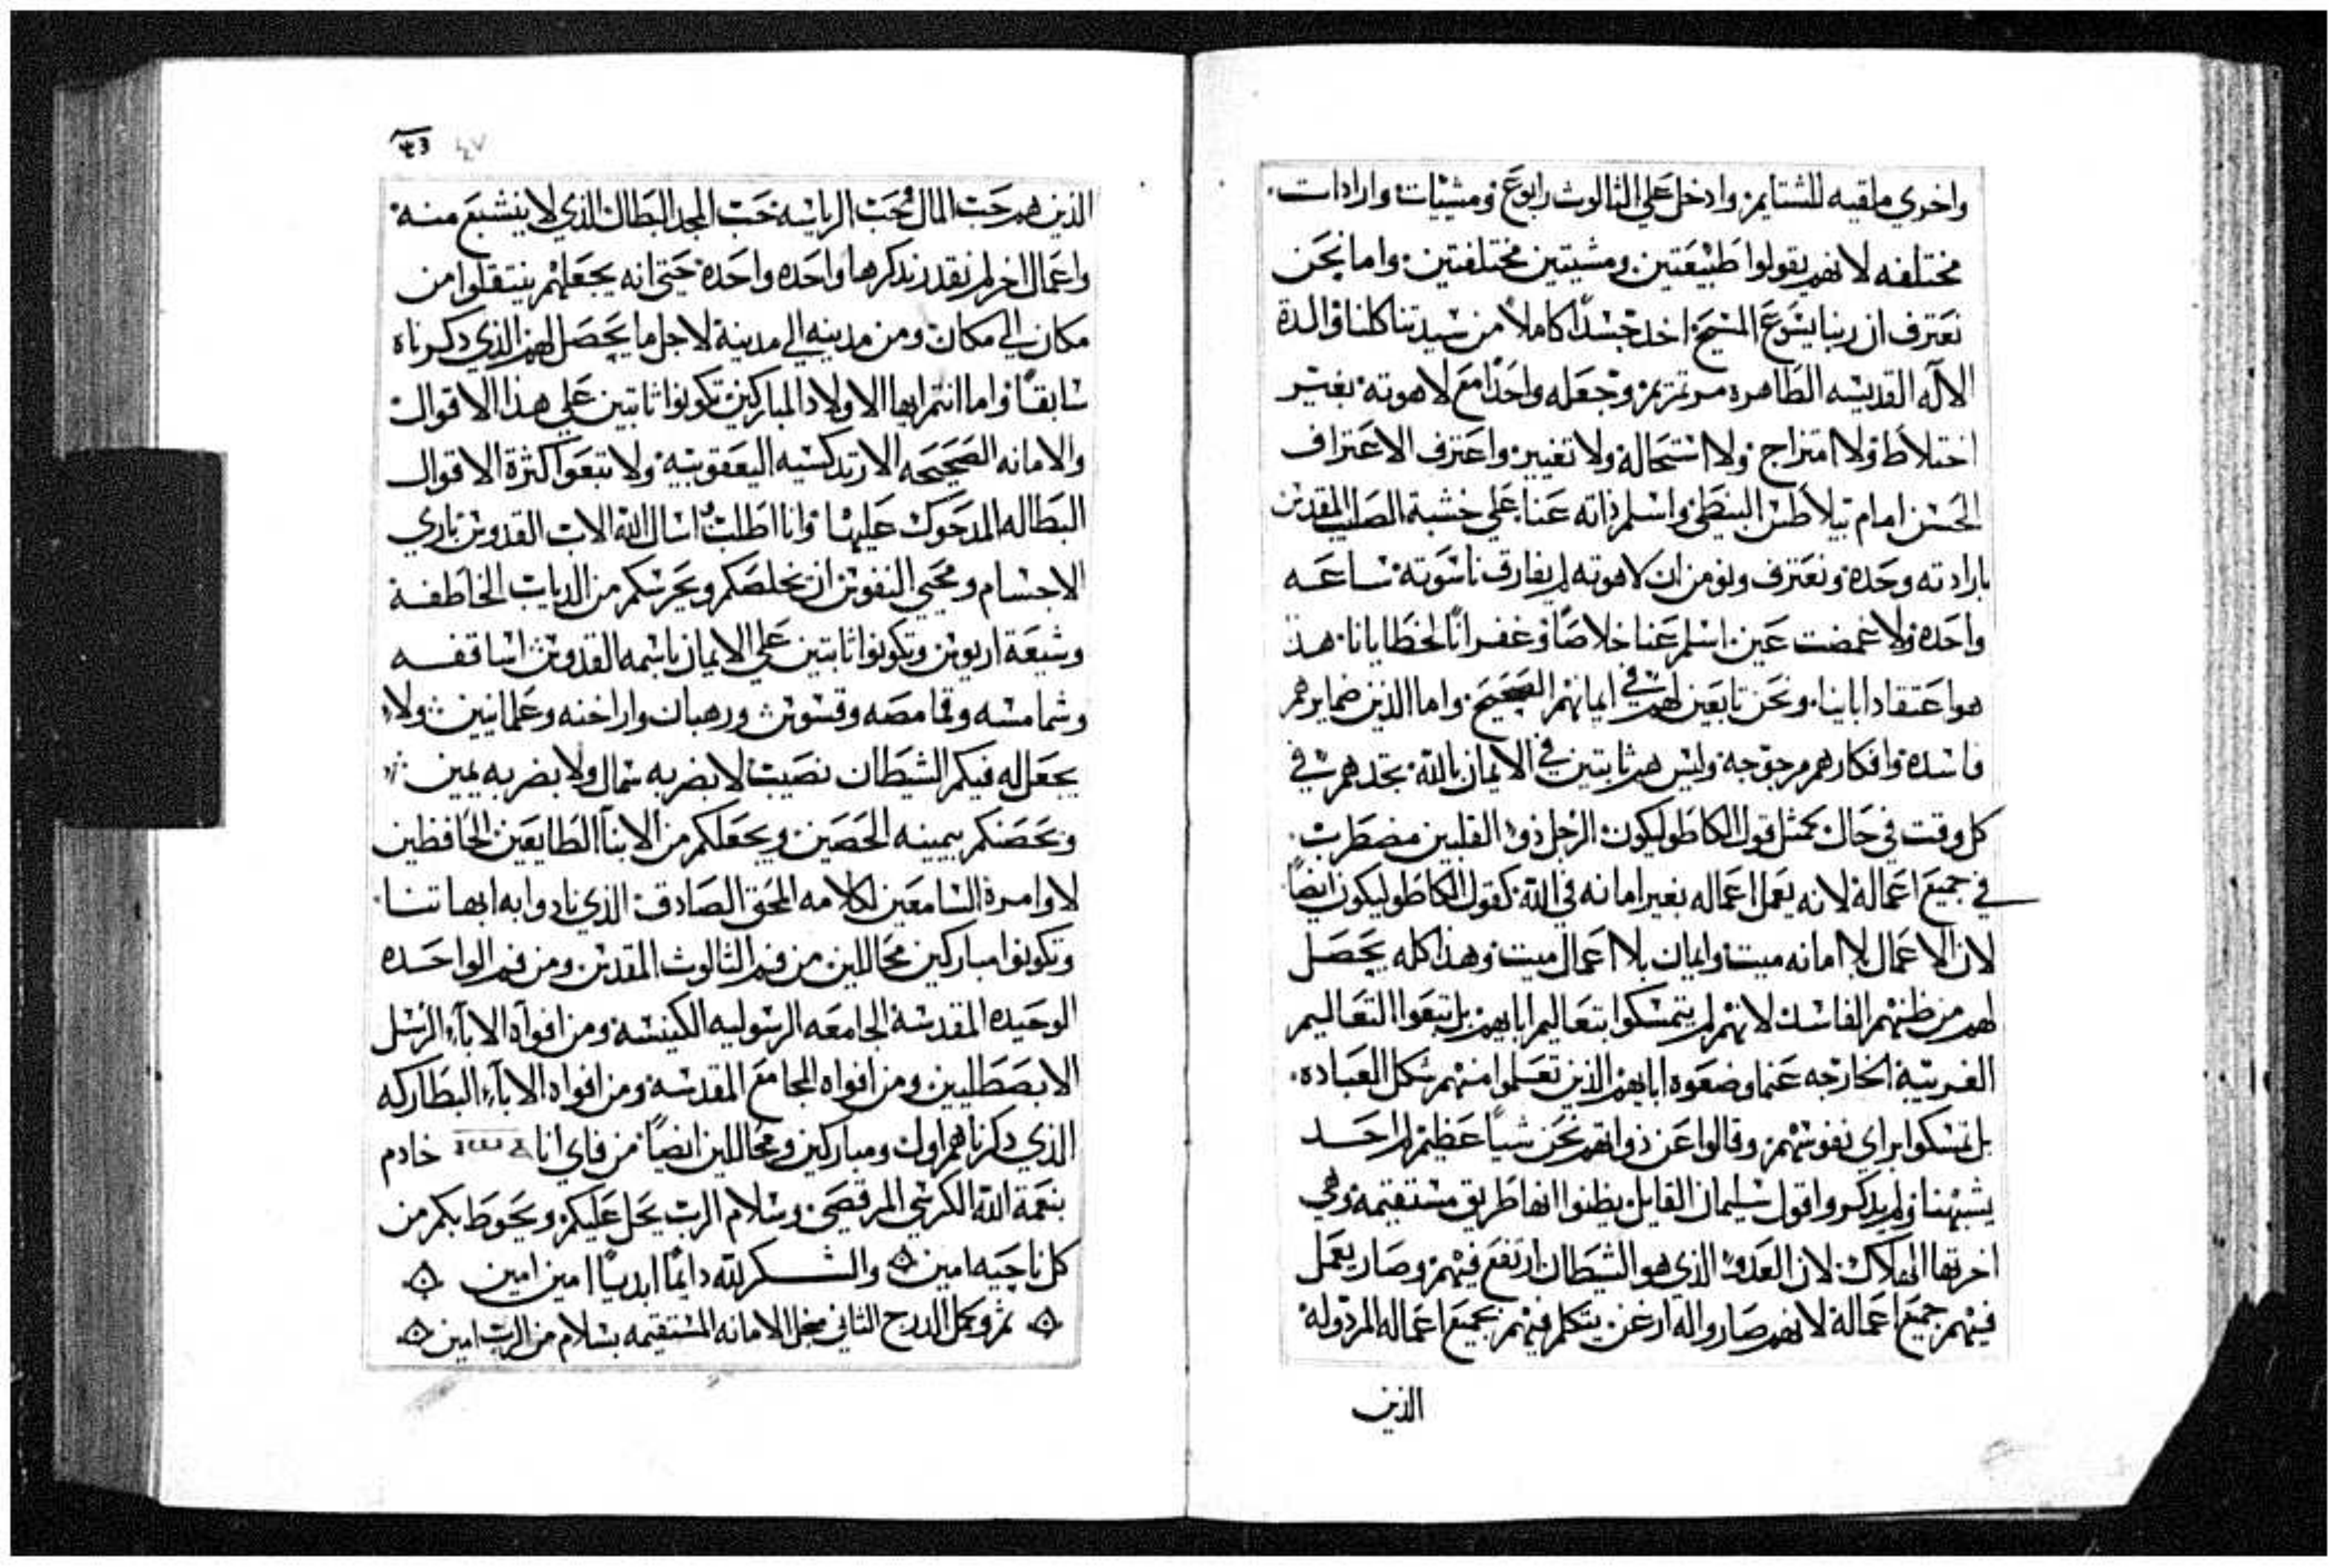 واخوي ملقيه للشتايم وادخل علي الثالوث رابوع ومشيات وارادات
مختلفه لانهم يقولوا طبيعتين ومشيتين مختلفتين واما نحن
نعترف ان ربنا يسوع المسيح اخد جسدًا كاملاً من سيدتنا كلنا والدة
الاله القديسه الطاهره مرتمريم وجعله واحدًا مع لاهوته بغير
اختلاط ولا امتزاج ولا استحالة ولا تغيير واعترف الاعتراف
الحسن امام بيلاطس البنطي واسلم ذاته عنا علي خشبة الصليب المقدس
بارادته وحده ونعترف ونومن ان لاهوته لم يفارق ناسوته ساعه
واحده ولا غمضت عين اسلم عنا خلاصًا وغفرانًا لخطايانا هذ
هو اعتقاد اباينا ونحن تابعين لهم في ايمانهم الصحيح واما الذين ضمايرهم
فاسدة وافكارهم مرجوجه وليس هم ثابتين في الايمان بالله تجدهم في
كل وقت في حال كمثل قول الكاطوليكون الرجل ذو القلبين مضطرب
في جميع اعماله لانه يعمل اعماله بغير امانه في الله كقول الكاطوليكون ايضًا
لان الاعمال بلا امانه ميت وايمان بلا اعمال ميت وهذا كله يحصل
لهم من ظنهم الفاسد لانهم لم يتمسكوا بتعاليم ابايهم بل تبعوا التعاليم
الغريبة الخارجه عنما وضعوه ابايهم الذين تعلموا منهم شكل العباده
بل تمسكوا براي نفوسهم وقالوا عن ذواتهم نحن شياً عظيم لم احد
يشبهنا ولم يدكروا قول سليمان القايل يظنوا انها طريق مستقيمة وهي
اخرتها الهلاك لان العدو الذي هو الشيطان ارتفع فيهم وصار يعمل
فيهم جميع اعماله لانهم صاروا له ارغن يتكلم فيهم بجميع اعماله المردوله
الذين
٤٧
الذين هم حب المال وحب الرياسه حب المجد البطال الذي لا ينشبع منه
واعمال اخر لم نقدر ندكرها واحده واحده حتي انه يجعلهم ينتقلوا من
مكان الي مكان ومن مدينه الي مدينة لاجل ما يحصل لهم الذي دكرناه
سابقًا واما انتم ايها الاولاد المباركين تكونوا ثابتين علي هذا الاقوال
والامانه الصحيحه الارتدكسيه اليعقوبيه ولا تتبعوا كثرة الاقوال
البطاله المدحوك عليها وانا اطلب اسال الله الاب القدوس باري
الاجسام ومحيي النفوس ان يخلصكم ويحرسكم من الدياب الخاطفة
وشيعة اريوس وتكونوا ثابتين علي الايمان باسمه القدوس اساقفه
وشمامسه وقمامصه وقسوس ورهبان واراخنه وعلمانيين ولا
يجعل له فيكم الشيطان نصيب لا بضربه شمال ولا بضربه يمين
ويحصنكم بيمينه الحصين ويجعلكم من الابنآ الطايعين الحافظين
لاوامره السامعين لكلامه المحق الصادق الذي نادوا به ابهاتنا
وتكونوا مباركين محاللين من فم الثالوث المقدس ومن فم الواحده
الوحيده المقدسة الجامعه الرسوليه الكنيسة ومن افواه الابآء الرسل
الابصطليين ومن افواه المجامع المقدسة ومن افواه الابآء البطاركه
الذي دكرناهم اول ومباركين ومحاللين ايضًا من فاي انا خادم
بنعمة الله الكرسي المرقصي وسلام الرب يحل عليكم ويحوط بكم من
كل ناحيه امين والشكر لله دايمًا ابديًا امين امين
تم وكمل الدرج الثاني الامانه المستقيمه بسلام من الرب امين